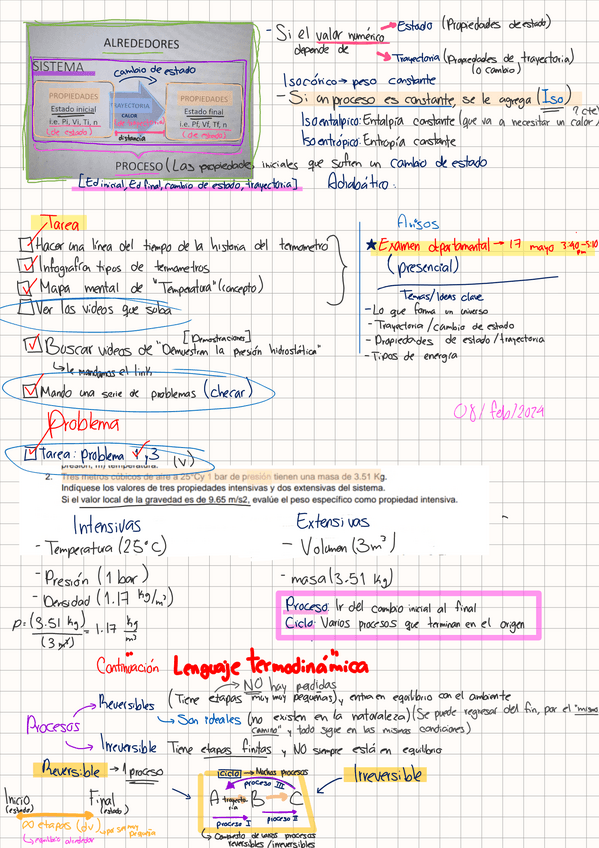 ALREDEDORES
SISTEMA
cambio de estado
PROPIEDADES
Estado inicial
i.e. Pi, Vi, Ti, n
(de estado)
TRAYECTORIA
CALOR
distancia
PROPIEDADES
Estado final
i.e. Pf, Vf, Tf, n
(de estado)
PROCESO (Las propiedades iniciales que sufren un cambio de estado
[Ed inicial, Ed final, cambio de estado, trayectoria]
- Si el valor numérico depende de
→ Estado (Propiedades de estado)
→ Trayectoria (Propiedades de trayectoria)
(o cambio)
Isocórico → peso constante
- Si un proceso es constante, se le agrega (Iso)
? cte
Isoentalpico: Entalpía constante (que va a necesitar un calor
Isoentrópico: Entropía constante
Adiabático:
Tarea
Hacer una línea del tiempo de la historia del termometro
Infografía tipos de termometros
Mapa mental de "Temperatura" (concepto)
Ver los videos que suba
[Demostraciones]
Buscar videos de "Demuestren la presión hidrostática"
↳ le mandamos el link
Mando una serie de problemas (checar)
Avisos
★ Examen departamental → 17 mayo 3:40-5:10 pm
(presencial)
Temas/Ideas clave
- Lo que forma un universo
- Trayectoria / cambio de estado
- Propiedades de estado/trayectoria
- Tipos de energía
08/feb/2024
Problema
Tarea: problema 1, 3
(V)
presión, m) temperatura.
2. Tres metros cúbicos de aire a 25°C y 1 bar de presión tienen una masa de 3.51 Kg.
Indíquese los valores de tres propiedades intensivas y dos extensivas del sistema.
Si el valor local de la gravedad es de 9.65 m/s2, evalúe el peso específico como propiedad intensiva.
Intensivas
- Temperatura (25°C)
- Presión (1 bar)
- Densidad (1.17 kg/m³)
ρ = (3.51 kg) / (3 m³) = 1.17 kg/m³
Extensivas
- Volumen (3m³)
- masa (3.51 Kg)
Proceso: Ir del cambio inicial al final
Ciclo: Varios procesos que terminan en el origen
Continuación Lenguaje termodinámica
→ NO hay perdidas
Procesos
→ Reversibles (Tiene etapas muy muy pequeñas), entra en equilibrio con el ambiente
↳ Son ideales (no existen en la naturaleza) (Se puede regresar del fin, por el "mismo
camino" y todo sigue en las mismas condiciones)
→ Irreversible Tiene etapas finitas y NO siempre está en equilibrio
Reversible → 1 proceso
Inicio (estado)
Final (estado)
∞ etapas (dv)
↳ equilibrio alrededor
Ciclo → Muchos procesos
proceso III
A trayectoria B C
proceso I proceso II
↳ Compuesto de varios procesos
reversibles / irreversibles
Irreversible